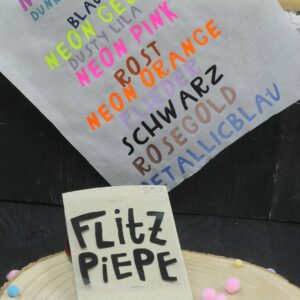 BLAU
NEON GELB
DUSTY LILA
NEON PINK
ROST
NEON ORANGE
FLIEDER
SCHWARZ
ROSEGOLD
METALLICBLAU
FLitZ
PiEPE